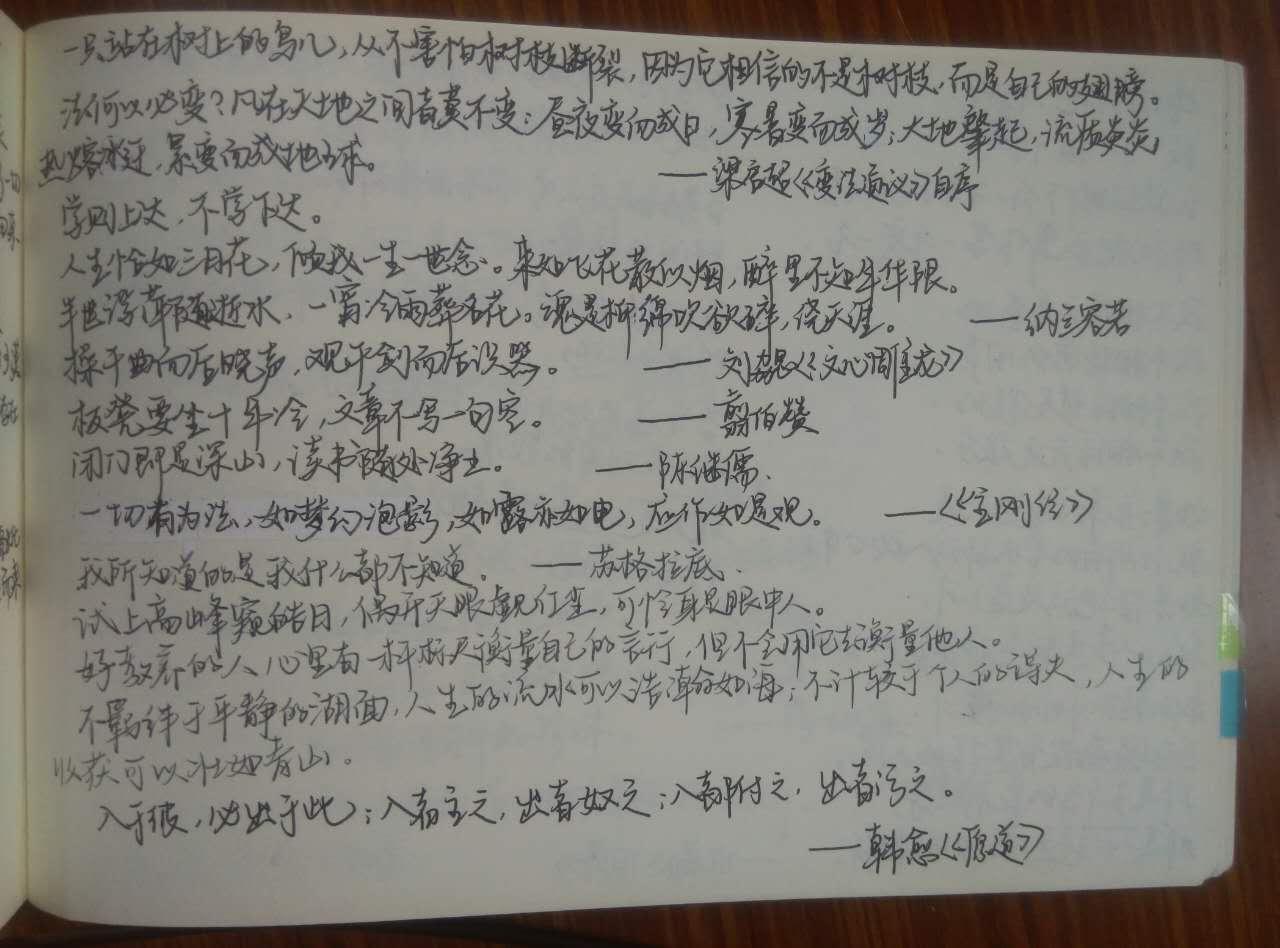 一只站在树上的鸟儿，从不害怕树枝断裂，因为它相信的不是树枝，而是自己的翅膀。
法何以必变？凡在天地之间者莫不变：昼夜变而成日，寒暑变而成岁；大地肇起，流质炎炎，
热熔冰迁，累变而成地球。 ——梁启超《变法通议》自序
学则上达，不学下达。
人生恰如三月花，倾我一生一世念。来如飞花散似烟，醉里不知年华限。
半世浮萍随逝水，一宵冷雨葬名花。魂是柳绵吹欲碎，绕天涯。 ——纳兰容若
操千曲而后晓声，观千剑而后识器。 ——刘勰《文心雕龙》
板凳要坐十年冷，文章不写一句空。 ——翦伯赞
闭门即是深山，读书随处净土。 ——陈继儒.
一切有为法，如梦幻泡影，如露亦如电，应作如是观。 ——《金刚经》
我所知道的是我什么都不知道。 ——苏格拉底.
试上高峰窥皓日，偶开天眼觑红尘，可怜身是眼中人。
好教养的人心里有一杆标尺衡量自己的言行，但不会用它去衡量他人。
不羁绊于平静的湖面，人生的流水可以浩瀚如海；不计较于个人的得失，人生的
收获可以壮如青山.
入于彼，必出于此；入者主之，出者奴之；入者附之，出者污之。
——韩愈《原道》